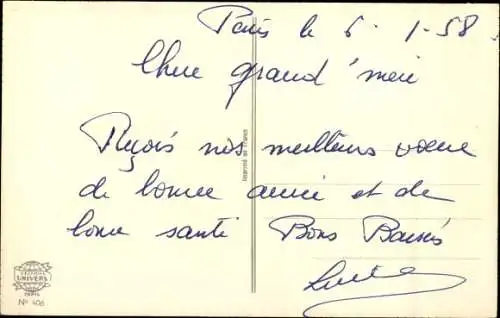 Paris le 6-1-58
Chere grand'mère
Reçois nos meilleurs voeux
de bonne année et de
bonne santé Bons Baisers
Imprimé en France
UNIVERS
PARIS
N° 406